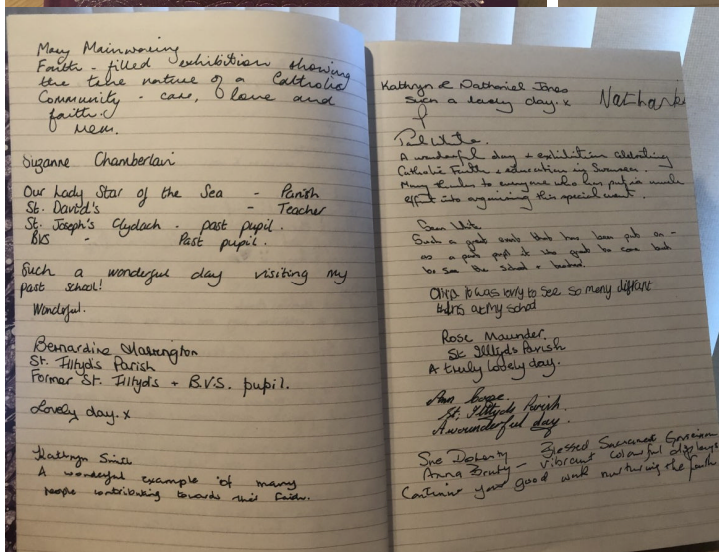 Mary Mainwaring
Faith-filled exhibition showing
the true nature of a Catholic
Community - care, love and
faith.
Suzanne Chamberlain
Our Lady Star of the Sea - Parish
St. David's - Teacher
St. Joseph's Clydach - past pupil.
BVS - Past pupil.
Such a wonderful day visiting my
past school!
Wonderful.
Bernardine Harrington
St. Illtyd's Parish
Former St. Illtyd's + B.V.S. pupil.
Lovely day. x
Kathryn Smith
A wonderful example of many
people contributing towards their faith.
Kathryn & Nathaniel Jones
Such a lovely day. x
Paul White.
A wonderful day + exhibition celebrating
Catholic Faith + education in Swansea.
Many thanks to everyone who has put so much
effort into organising this special event.
Sean White
Such a great event that has been put on -
as a past pupil it was great to come back
to see the school +
it was lovely to see so many different
things at my school
Rose Maunder.
St Illtyds Parish
A truly lovely day.
Ann
St. Illtyds Parish.
A wounderful day.
Sue Doherty - Blessed Sacrament Gorseinon
Anna - Vibrant colourful displays
Continue your good work nurturing the faith